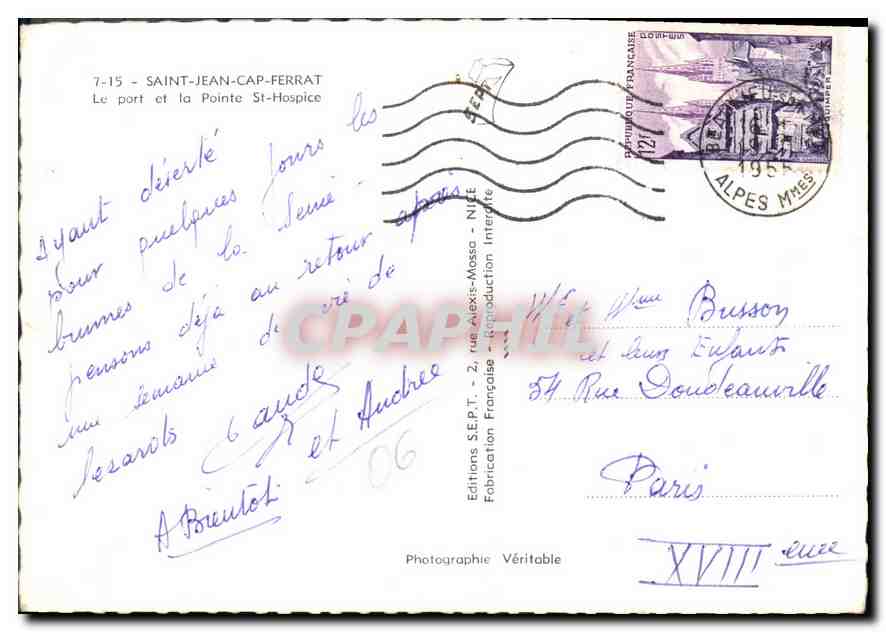 7-15 - SAINT-JEAN-CAP-FERRAT
Le port et la Pointe St-Hospice
Ayant déserté
pour quelques jours les
brumes de la Seine
pensons déjà au retour après
une semaine de vie de
lezards
et Andree
A Bientôt
06
Photographie Véritable
Editions S.E.P.T. - 2, rue Alexis-Mossa - NICE
Fabrication Française - Reproduction Interdite
SEPT
REPUBLIQUE FRANÇAISE
POSTES
12F
QUIMPER
1955
ALPES Mmes
CPAPHIL
Mr et Mme Busson
et leurs Enfants
54 Rue Doudeauville
Paris
XVIII eme